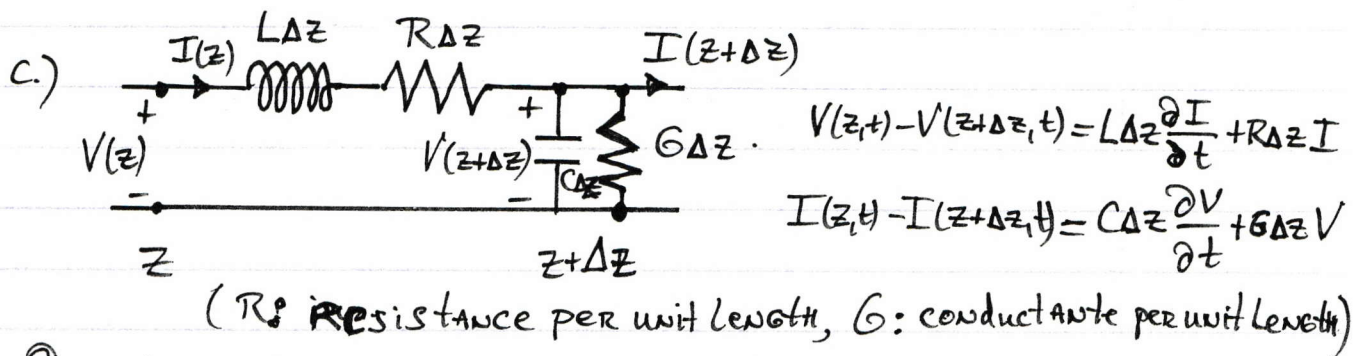 C.)
I(z) LΔz RΔz I(z+Δz)
+ +
V(z) V(z+Δz) CΔz GΔz.
- -
z z+Δz
V(z,t)-V(z+Δz,t)=LΔz ∂I/∂t +RΔz I
I(z,t)-I(z+Δz,t)= CΔz ∂V/∂t +GΔz V
(R: Resistance per unit length, G: conductante per unit length)